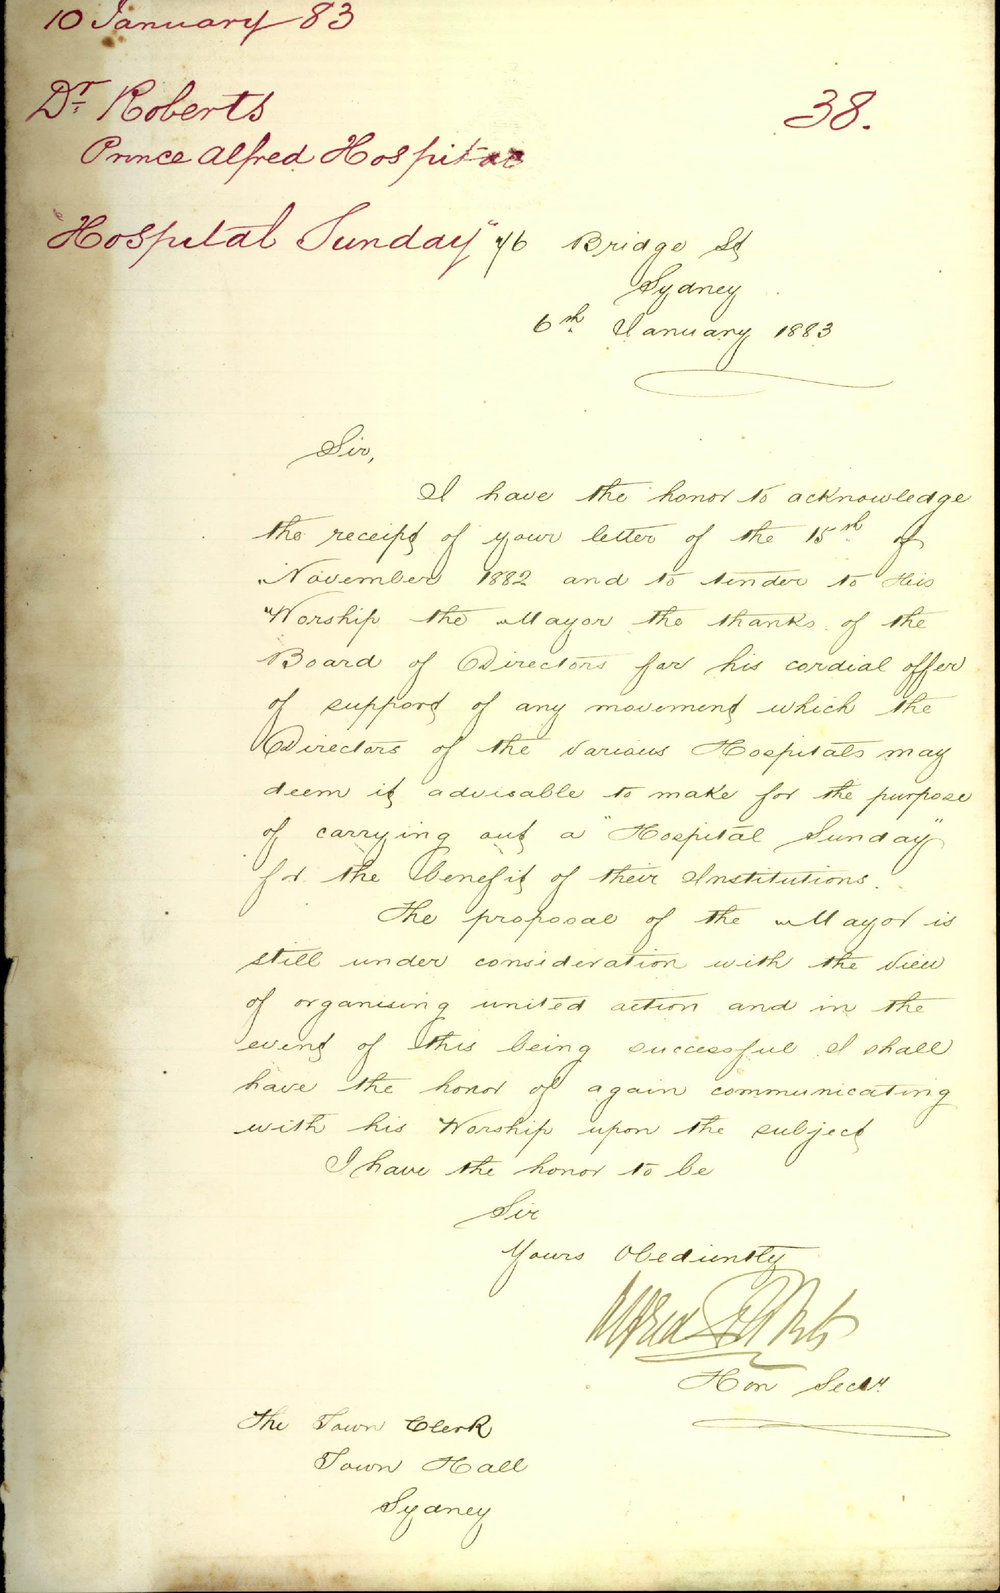 10 January 83
Dr Roberts
38.
Prince Alfred Hospital
"Hospital Sunday"
76 Bridge St
Sydney
6th January 1883
Sir,
I have the honor to acknowledge
the receipt of your letter of the 15th of
November 1882 and to tender to His
Worship the Mayor the thanks of the
Board of Directors for his cordial offer
of support of any movement which the
Directors of the various Hospitals may
deem it advisable to make for the purpose
of carrying out a "Hospital Sunday"
for the benefit of their Institutions.
The proposal of the Mayor is
still under consideration with the view
of organising united action and in the
event of this being successful I shall
have the honor of again communicating
with his Worship upon the subject
I have the honor to be
Sir
Yours Obediently
Alfred Roberts
Hon Secry
The Town Clerk
Town Hall
Sydney